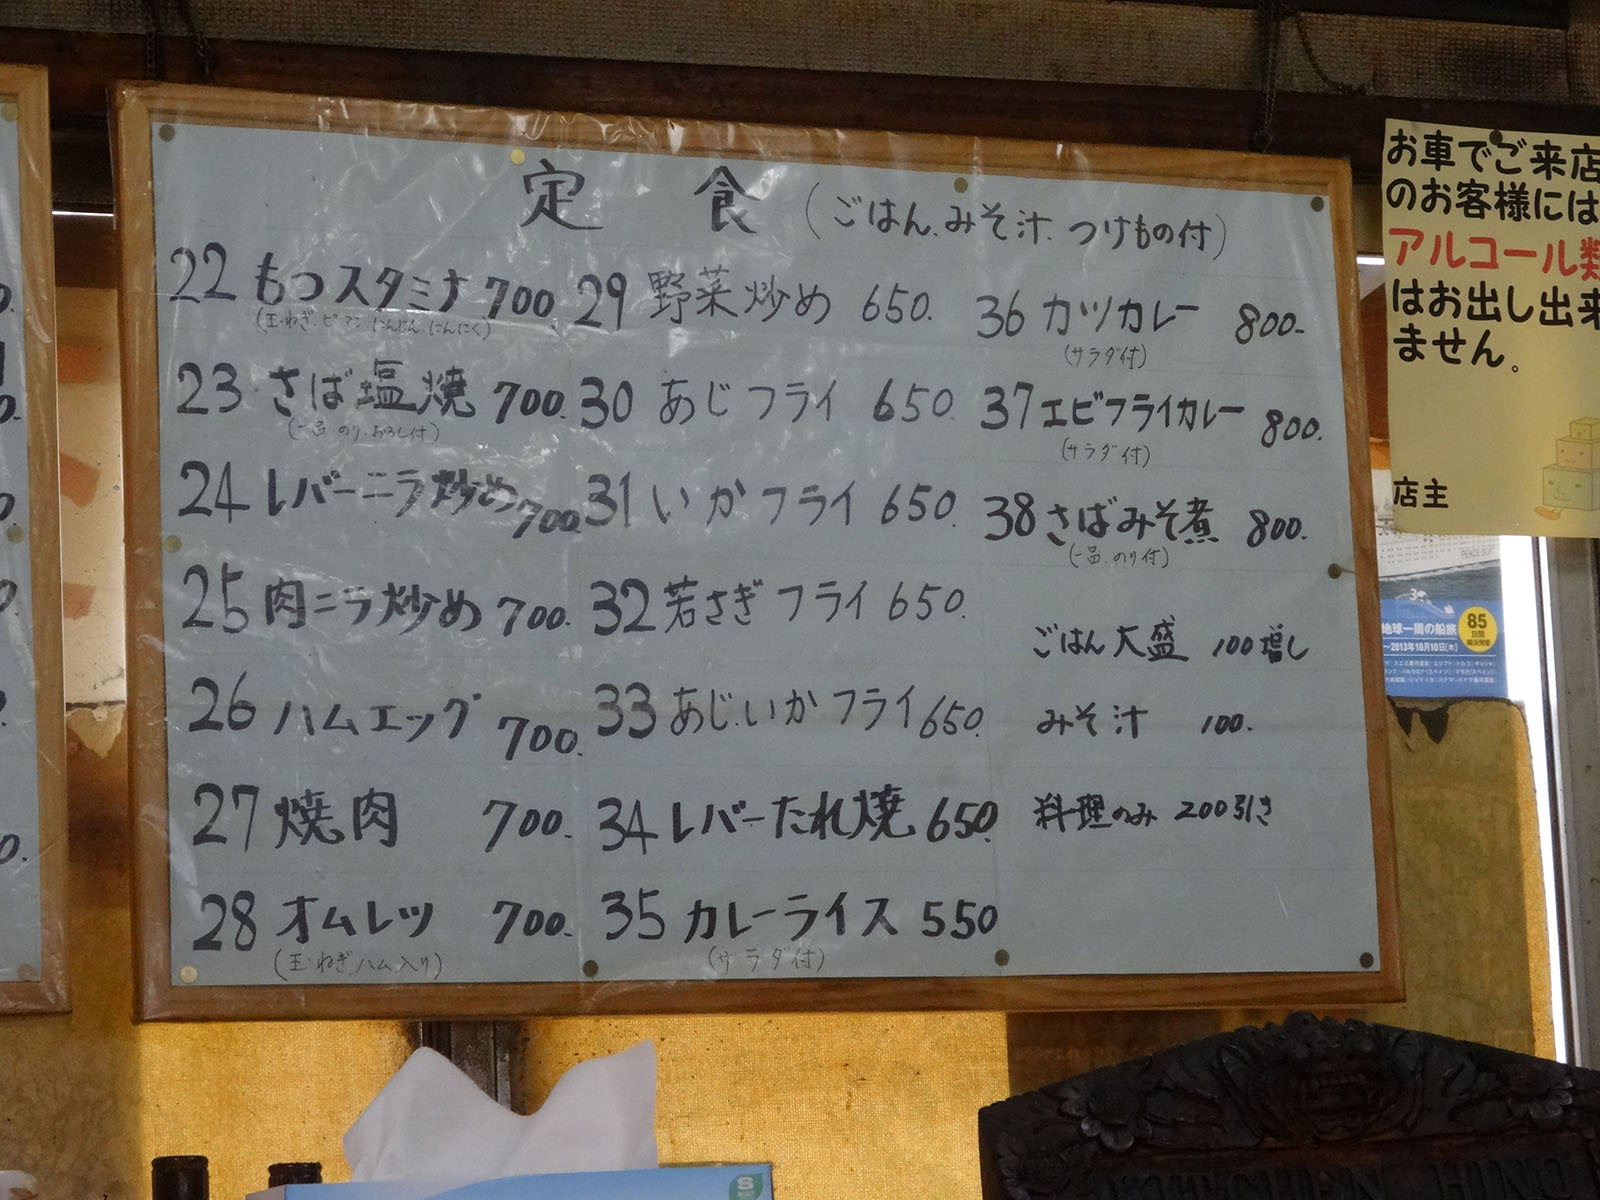 定食(ごはん.みそ汁.つけもの付)
22 もつスタミナ 700
(玉ねぎ.ピーマン.にんじん.にんにく)
23 さば塩焼 700.
(一品.のり.おろし付)
24 レバーニラ炒め 700.
25 肉ニラ炒め 700.
26 ハムエッグ 700.
27 焼肉 700.
28 オムレツ 700.
(玉ねぎ.ハム入り)
29 野菜炒め 650.
30 あじフライ 650.
31 いかフライ 650.
32 若さぎフライ 650.
33 あじ.いかフライ 650.
34 レバーたれ焼 650.
35 カレーライス 550
(サラダ付)
36 カツカレー 800-
(サラダ付)
37 エビフライカレー 800.
(サラダ付)
38 さばみそ煮 800.
(一品.のり付)
ごはん大盛 100増し
みそ汁 100.
料理のみ 200引き
お車でご来店
のお客様には
アルコール類
はお出し出来
ません。
店主
PEACE BOAT
地球一周の船旅
85
日間
~2013年10月10日[木]
S
KITCHEN HINO